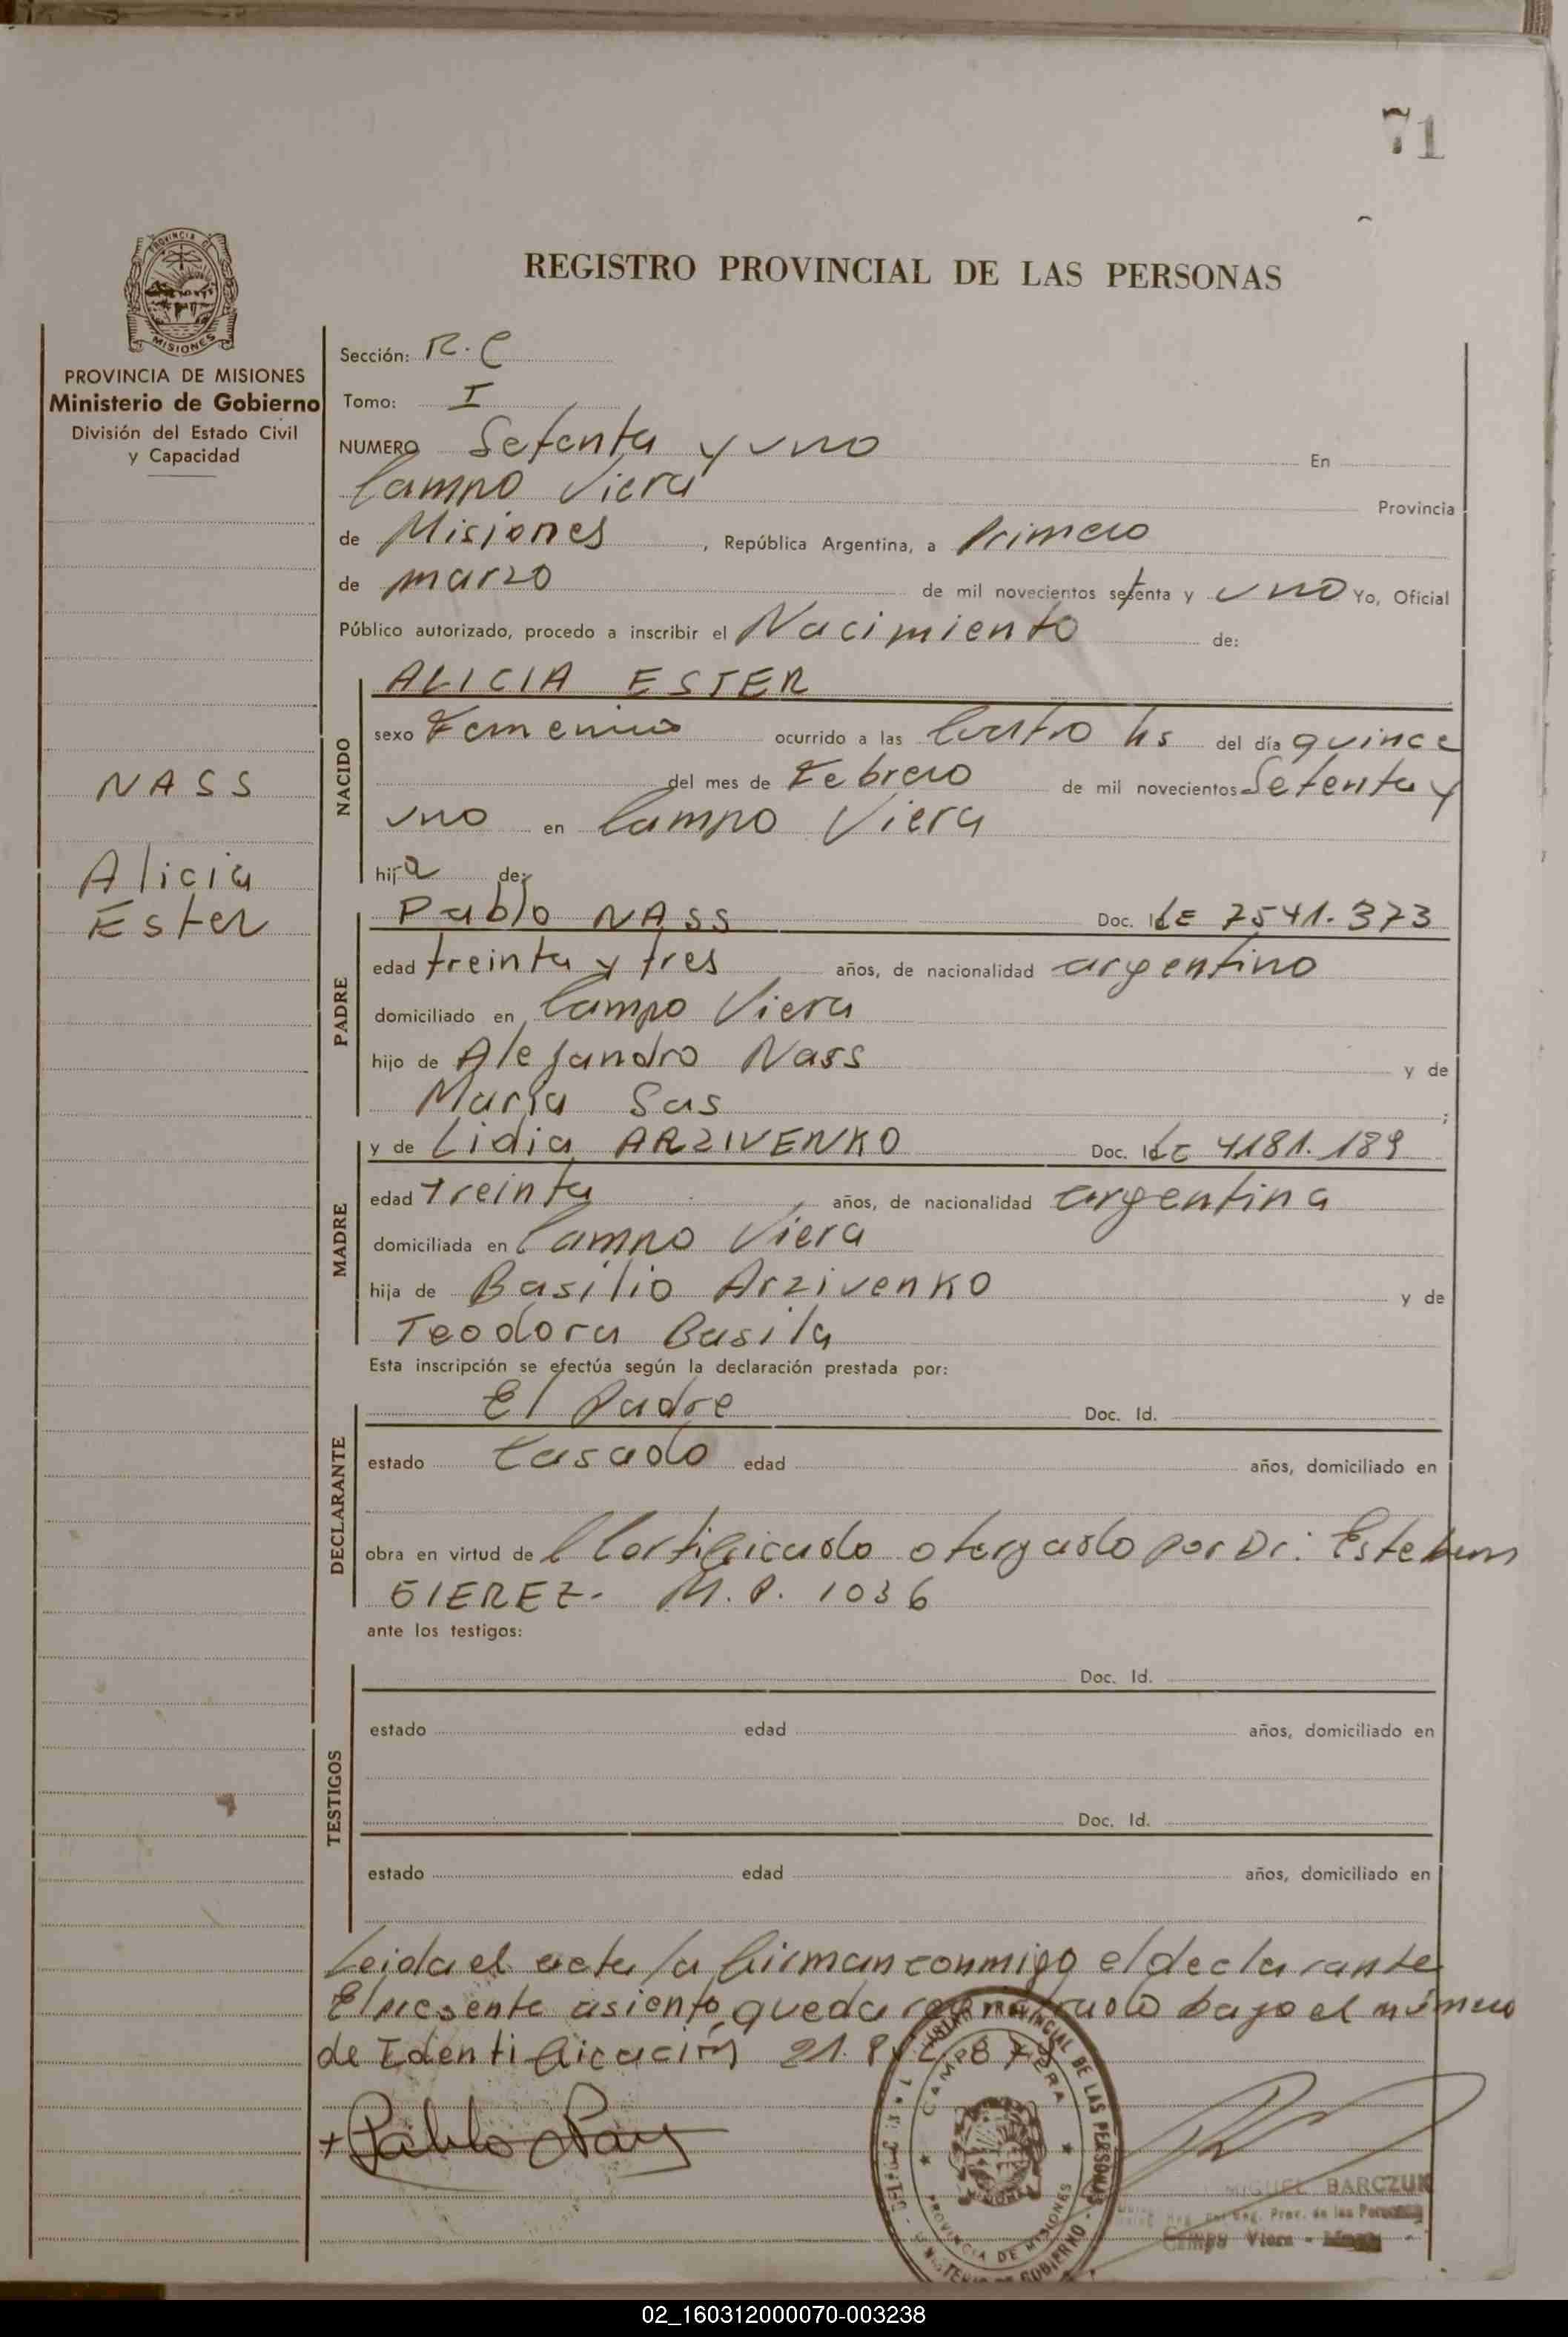 71
REGISTRO PROVINCIAL DE LAS PERSONAS
PROVINCIA DE MISIONES
Ministerio de Gobierno
División del Estado Civil
y Capacidad
NASS
Alicia
Ester
Sección: R. C
Tomo: I
NUMERO Setenta y uno En
Campo Viera Provincia
de Misiones, República Argentina, a Primero
de marzo de mil novecientos setenta y uno Yo, Oficial
Público autorizado, procedo a inscribir el Nacimiento de:
NACIDO
ALICIA ESTER
sexo Femenino ocurrido a las Cuatro hs del día quince
del mes de Febrero de mil novecientos Setenta y
uno en Campo Viera
hija de:
PADRE
Pablo NASS Doc. Id. LE 7541.373
edad treinta y tres años, de nacionalidad argentino
domiciliado en Campo Viera
hijo de Alejandro Nass y de
Maria Sas ;
MADRE
y de Lidia ARZIVENKO Doc. Id. LC 4181.189
edad treinta años, de nacionalidad argentina
domiciliada en Campo Viera
hija de Basilio Arzivenko y de
Teodora Basila
Esta inscripción se efectúa según la declaración prestada por:
DECLARANTE
El Padre Doc. Id.
estado Casado edad años, domiciliado en
obra en virtud de Certificado otorgado por Dr. Esteban
M.P. 1036
ante los testigos:
TESTIGOS
Doc. Id.
estado edad años, domiciliado en
Doc. Id.
estado edad años, domiciliado en
Leida el acta la firman conmigo el declarante
El presente asiento queda registrado bajo el número
de Identificación 21.
Pablo Nass
CAMPO VIERA
PROVINCIAL DE LAS PERSONAS
PROVINCIA DE MISIONES
MINISTERIO DE GOBIERNO
MIGUEL BARCZUK
Prov. de las
Campo Viera -
02_160312000070-003238